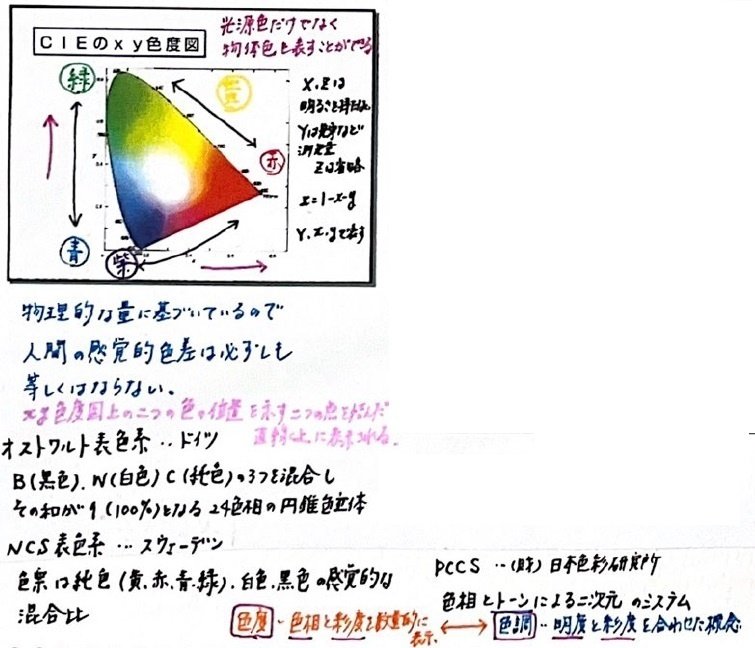 光源色だけでなく
物体色も表すことができる
CIEのxy色度図
緑
黄
赤
青
紫
X、Zは
明るさを持たない
Yは
測光量
Zは省略
z=1-x-y
Y、x、yで表す
物理的な量に基づいているので
人間の感覚的色差は必ずしも
等しくはならない。
xy色度図上の二つの色の位置を示す二つの点を結んだ
直線上に表示される。
オストワルト表色系‥ドイツ
B(黒色)、W(白色)C(純色)の3つを混合し
その和が1(100%)となる24色相の円錐色立体
NCS表色系…スウェーデン
色票は純色(黄、赤、青、緑)、白色、黒色の感覚的な
混合比
PCCS‥(財)日本色彩研究所
色相とトーンによる二次元のシステム
色度‥色相と彩度を数量的に
表示。
色調‥明度と彩度を合わせた概念